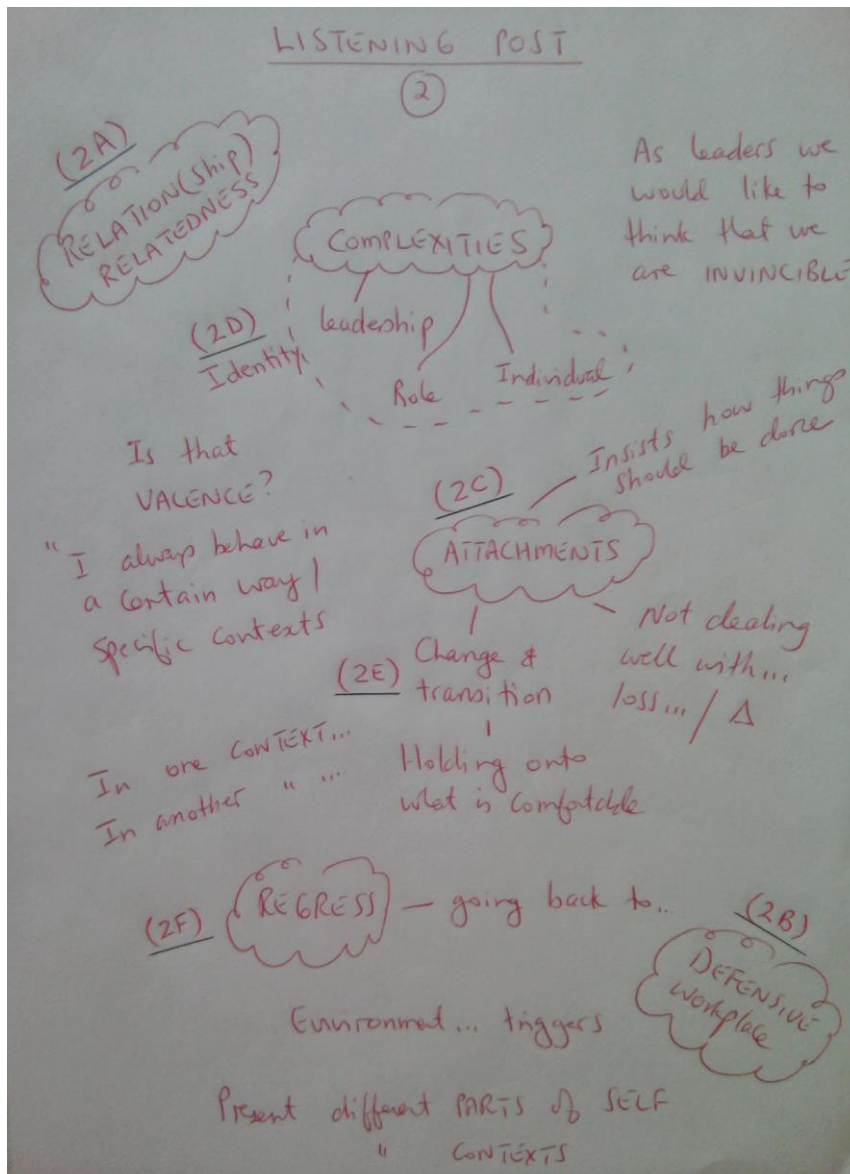 LISTENING POST
2
(2A)
RELATION(Ship)
RELATEDNESS
As leaders we
would like to
think that we
are INVINCIBLE
COMPLEXITIES
leadership
Role
Individual
(2D)
Identity
Is that
VALENCE?
"I always behave in
a certain way /
Specific contexts
(2C)
Insists how things
should be done
ATTACHMENTS
(2E) Change &
transition
Not dealing
well with...
loss... / Δ
In one CONTEXT...
In another " ...
Holding onto
what is comfortable
(2F) REGRESS — going back to...
(2B)
DEFENSIVE
Workplace
Environment... triggers
Present different PARTS of SELF
" CONTEXTS